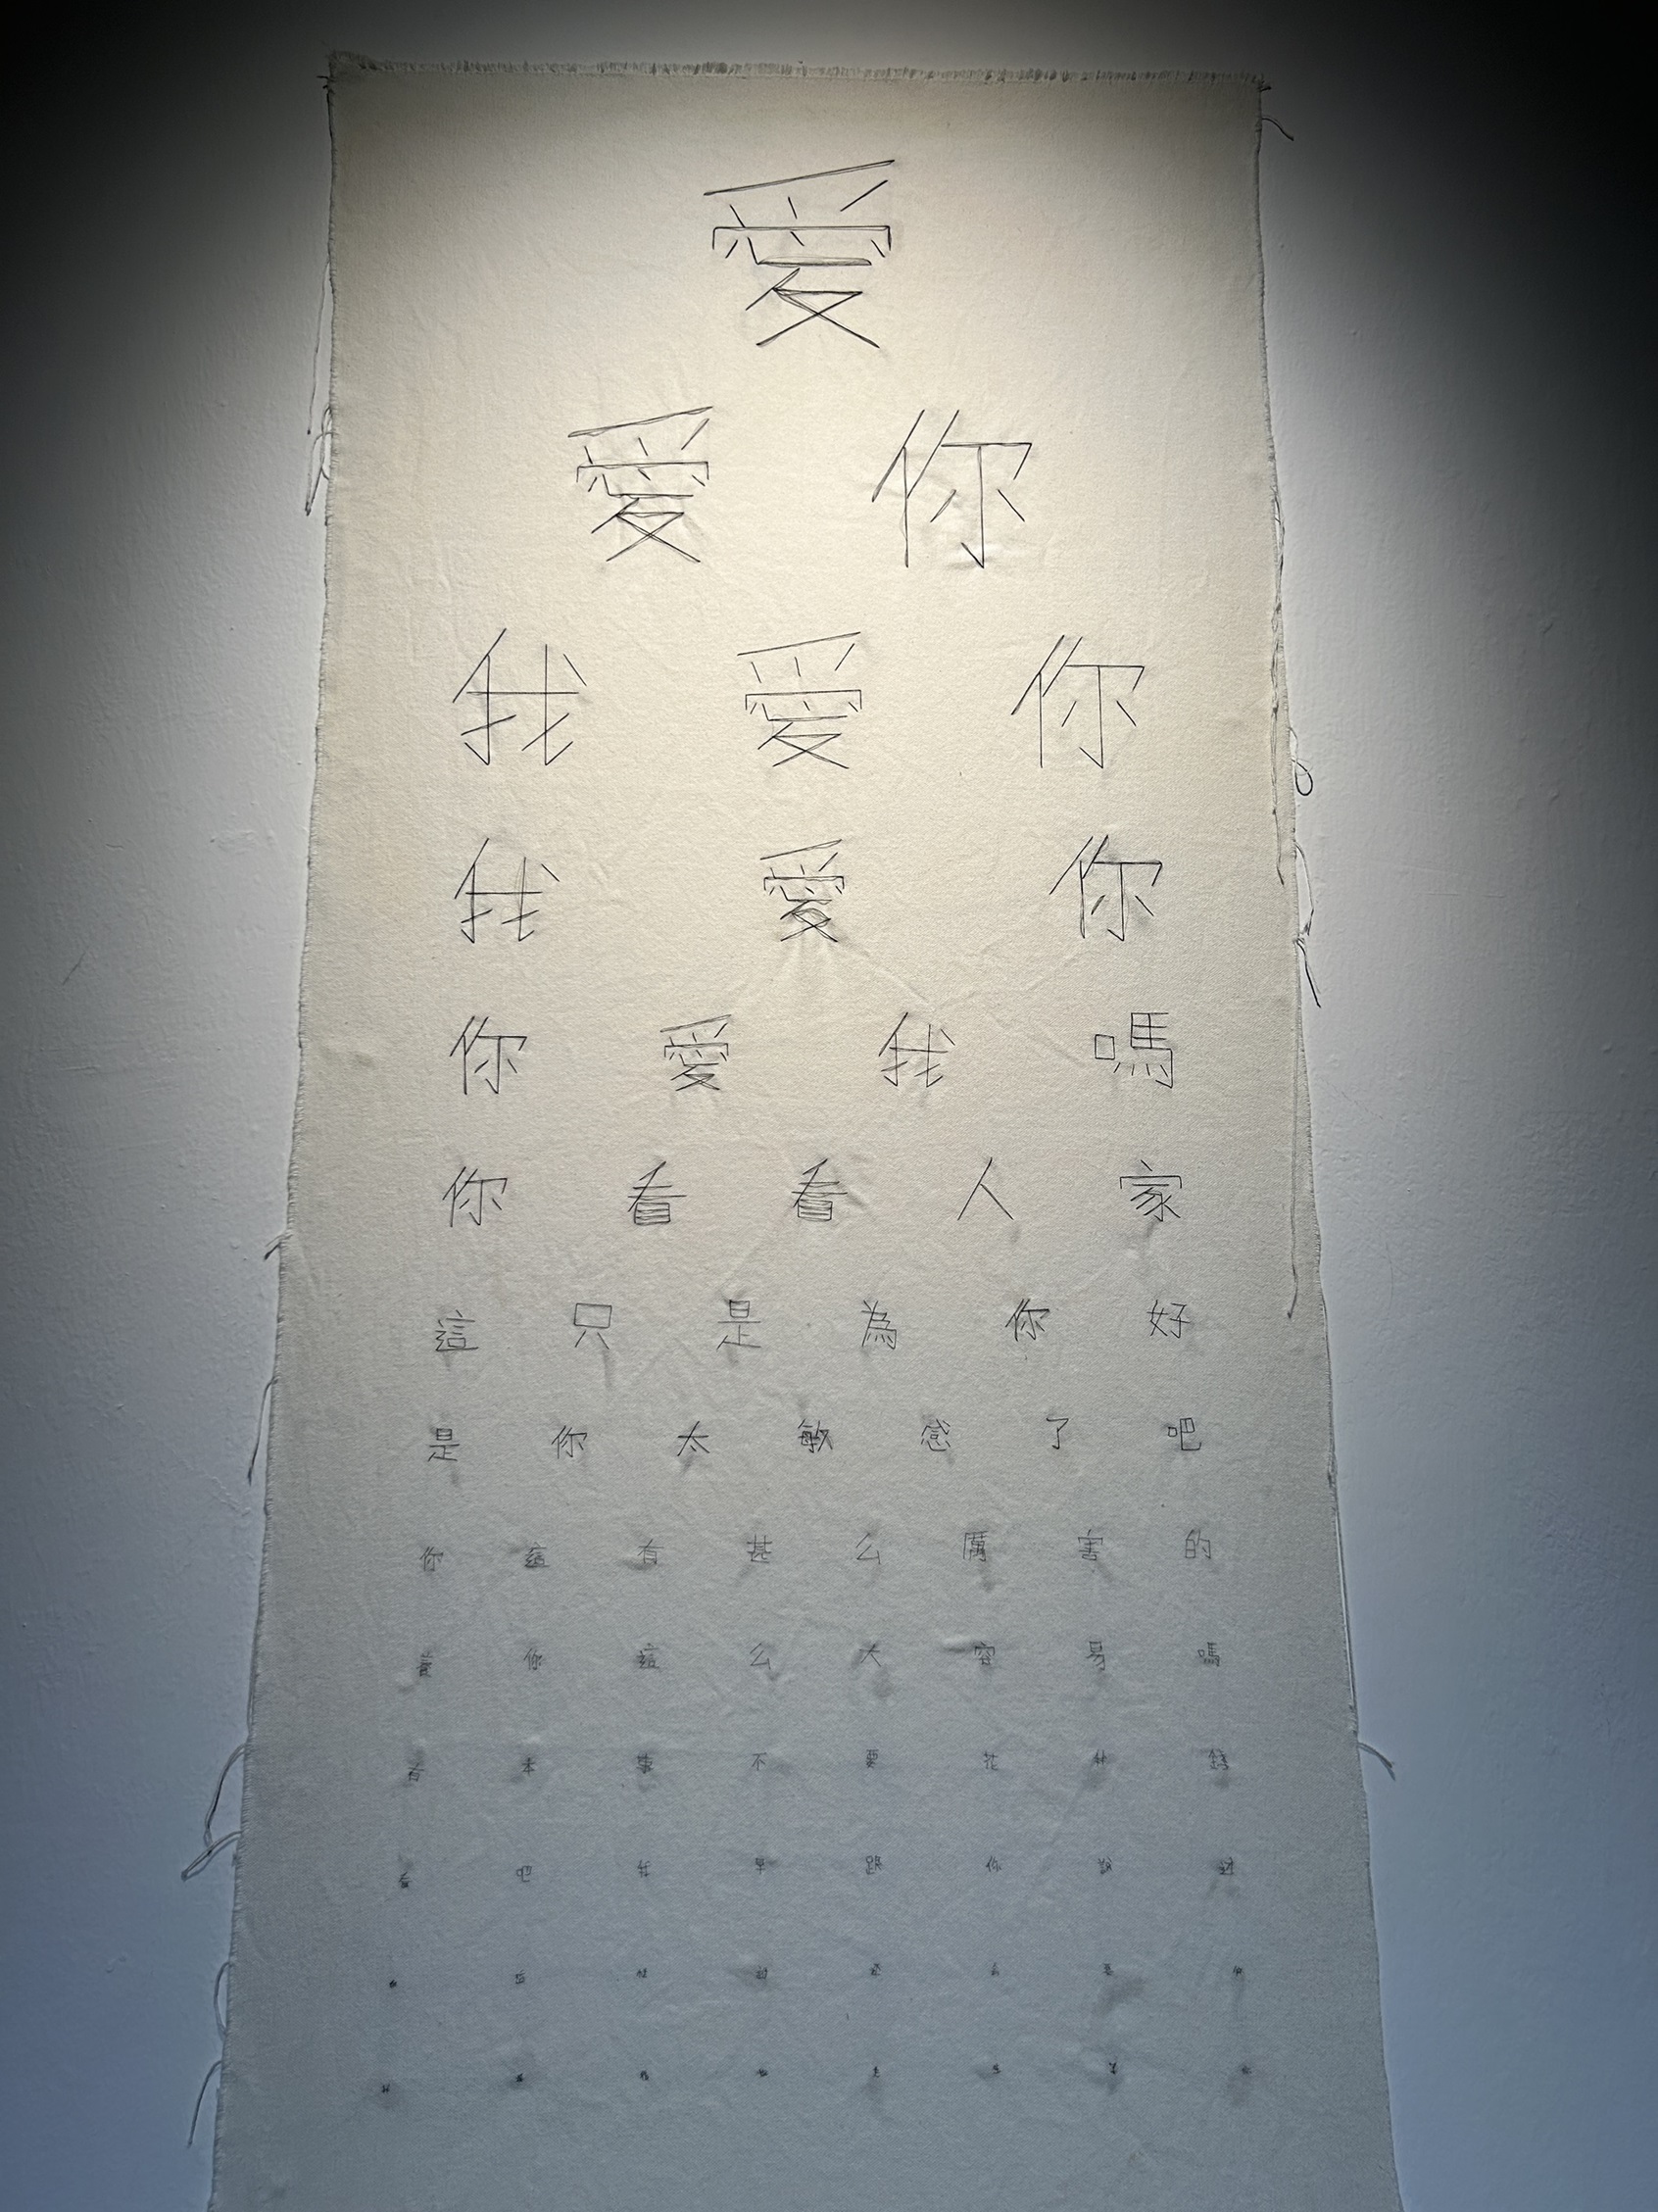 愛
愛 你
我 愛 你
我 愛 你
你 愛 我 嗎
你 看 看 人 家
這 只 是 為 你 好
是 你 太 敏 感 了 吧
你 這 有 甚 么 厲 害 的
養 你 這 么 大 容 易 嗎
有 本 事 不 要 花 我 錢
看 吧 我 早 跟 你 說 過